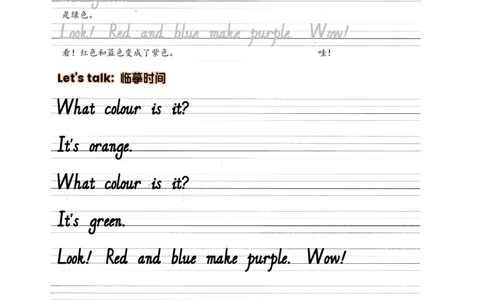 是绿色。
Look! Red and blue make purple. Wow!
看！红色和蓝色变成了紫色。 哇！
Let's talk: 临摹时间
What colour is it?
It's orange.
What colour is it?
It's green.
Look! Red and blue make purple. Wow!